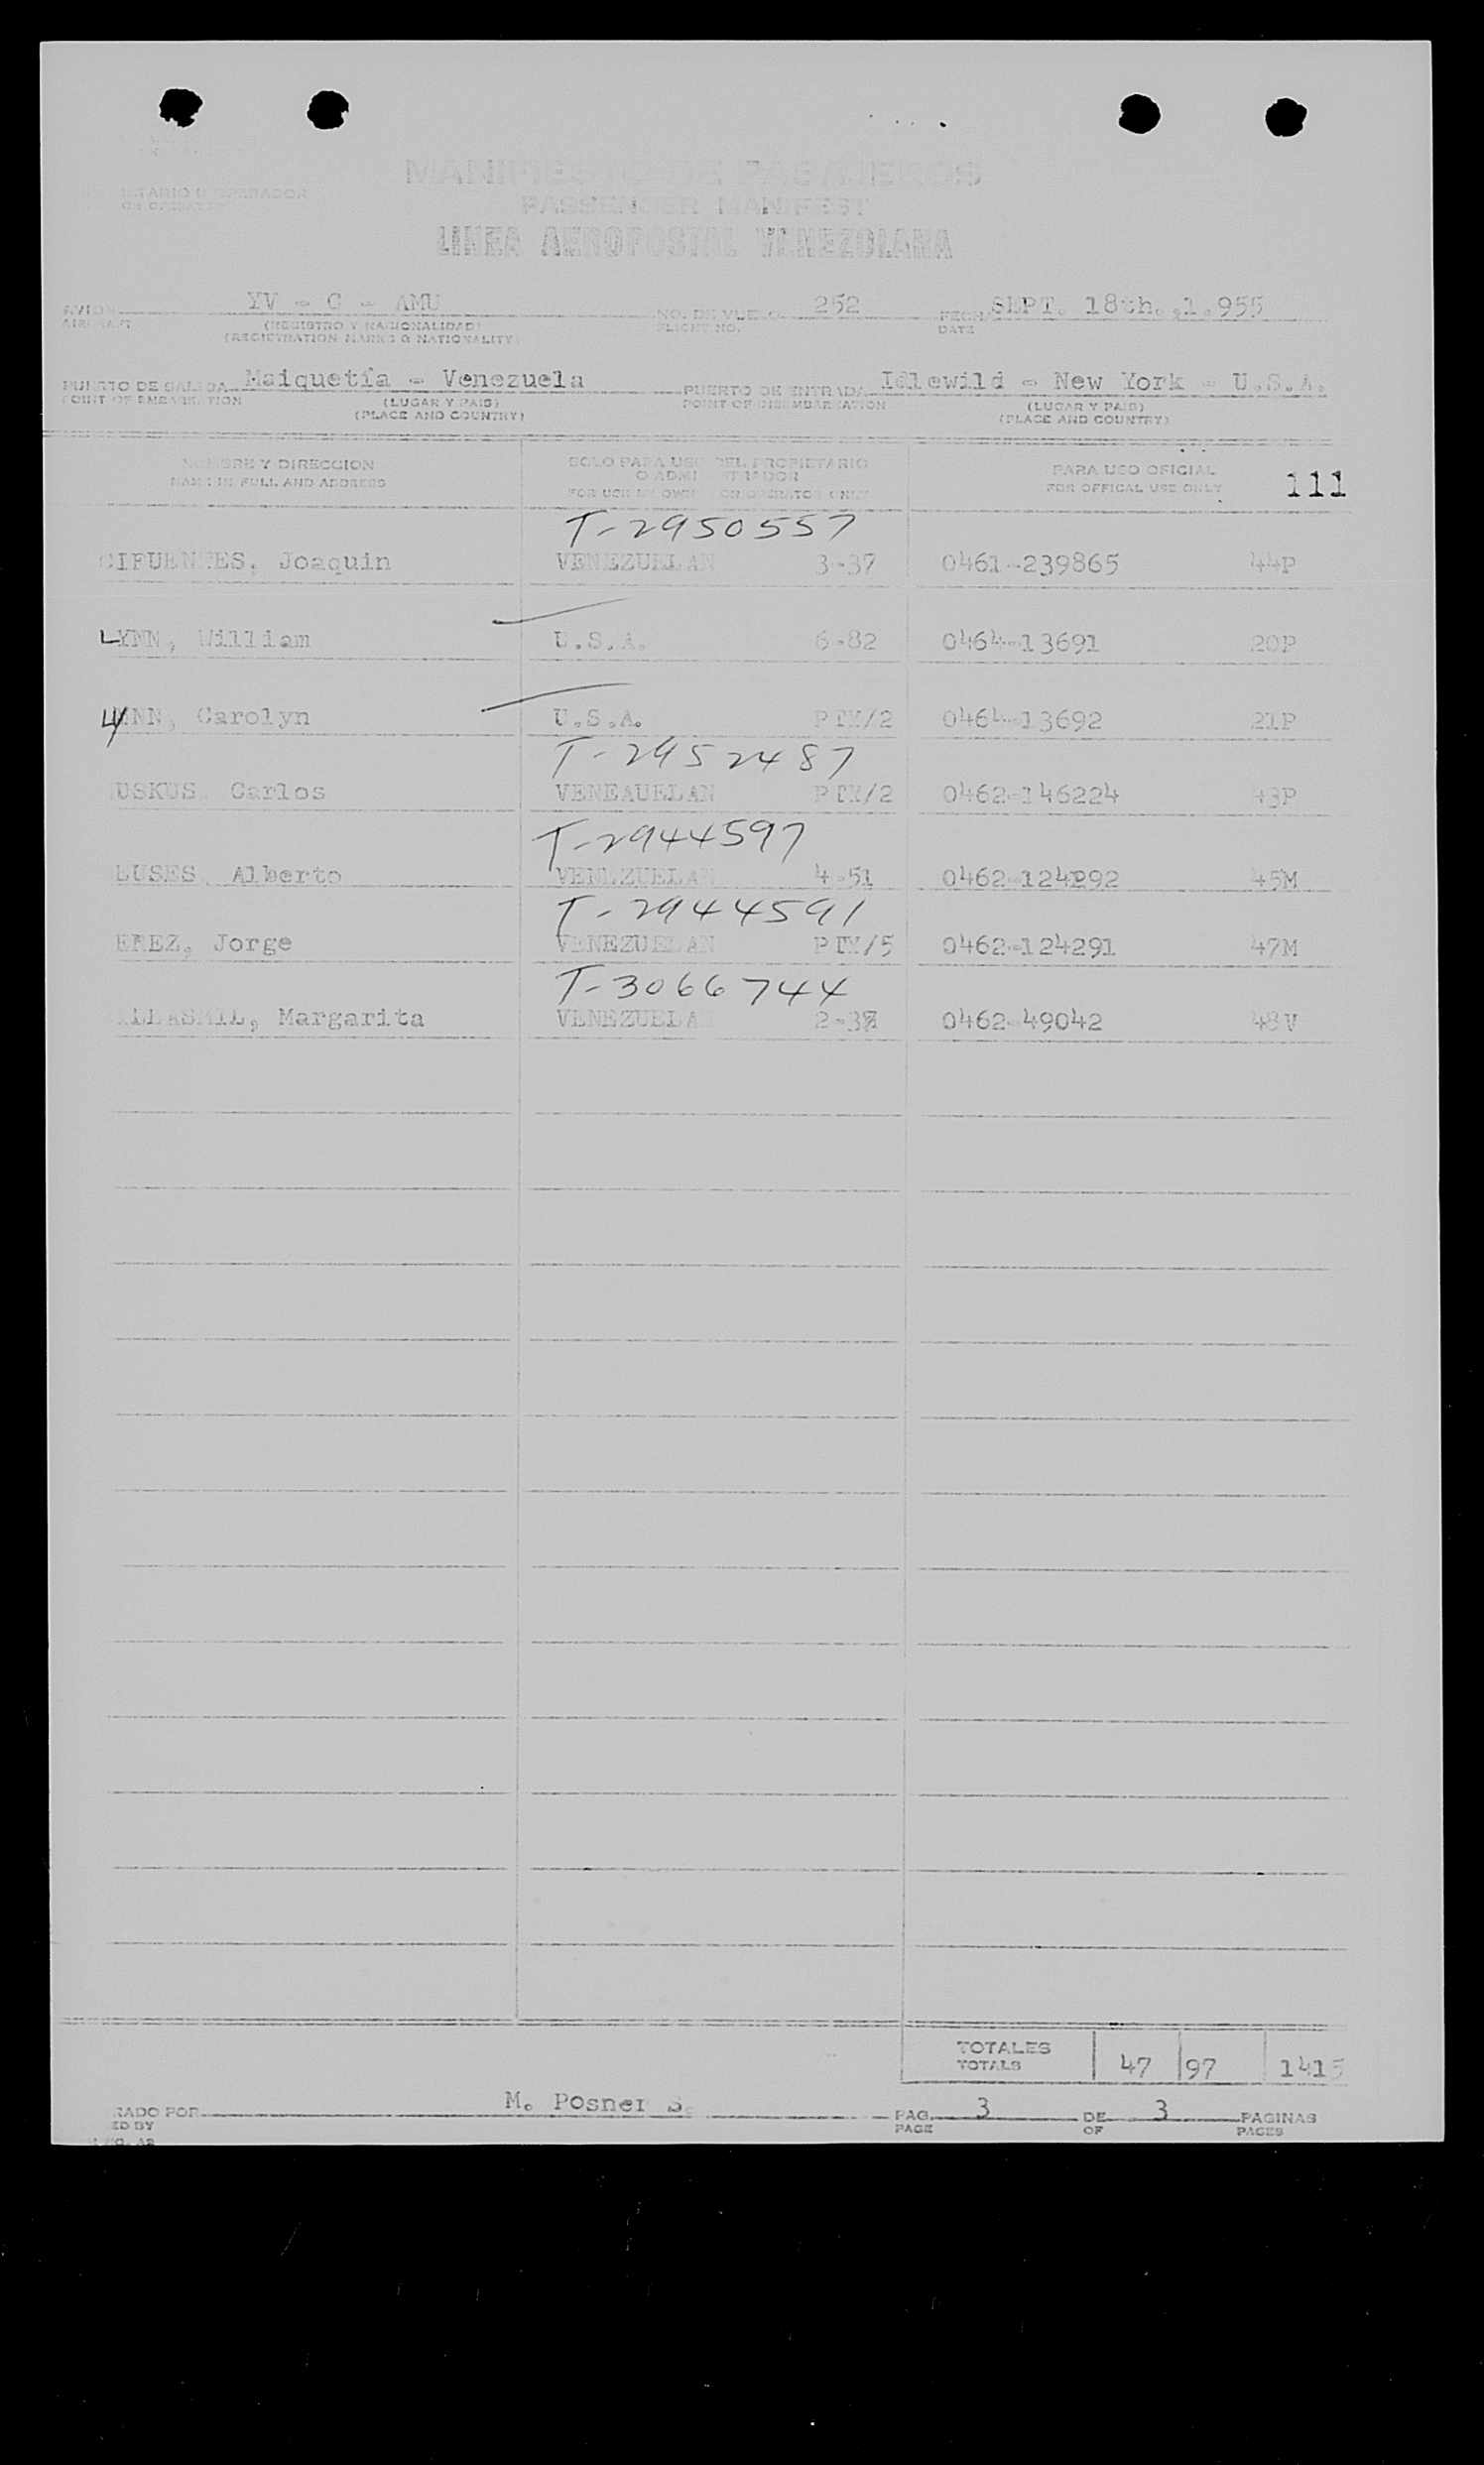 MANIFIESTO DE PASAJEROS
PASSENGER MANIFEST
LINEA AEROPOSTAL VENEZOLANA
AVION YV - C - AMU NO. DE VUELO 252 FECHA SEPT. 18th. ,1.955
AIRCRAFT (REGISTRO Y NACIONALIDAD) FLIGHT NO. DATE
(REGISTRATION MARKS & NATIONALITY)
PUERTO DE SALIDA Maiquetía - Venezuela PUERTO DE ENTRADA Idlewild - New York - U.S.A.
POINT OF EMBARKATION (LUGAR Y PAIS) POINT OF DISEMBARKATION (LUGAR Y PAIS)
(PLACE AND COUNTRY) (PLACE AND COUNTRY)
NOMBRE Y DIRECCION SOLO PARA USO DEL PROPIETARIO PARA USO OFICIAL
NAME IN FULL AND ADDRESS O ADMINISTRADOR FOR OFFICAL USE ONLY 111
FOR USE BY OWNER OR OPERATOR ONLY
T-2950557
CIFUENTES, Joaquin VENEZUELAN 3-37 0461-239865 44P
LYNN, William U.S.A. 6-82 0464-13691 20P
LYNN, Carolyn U.S.A. PTM/2 0464-13692 21P
T-2952487
USKUS Carlos VENEAUELAN PTM/2 0462-146224 43P
T-2944597
LUSES Alberto VENEZUELA 4-51 0462-124292 45M
T-2944591
EREZ, Jorge VENEZUELAN PTM/5 0462-124291 47M
T-3066744
Margarita VENEZUELA 0462-49042 48V
TOTALES 47 97 1415
TOTALS
M. Posner S.
RADO POR PAG. 3 DE 3 PAGINAS
ED BY PAGE OF PAGES